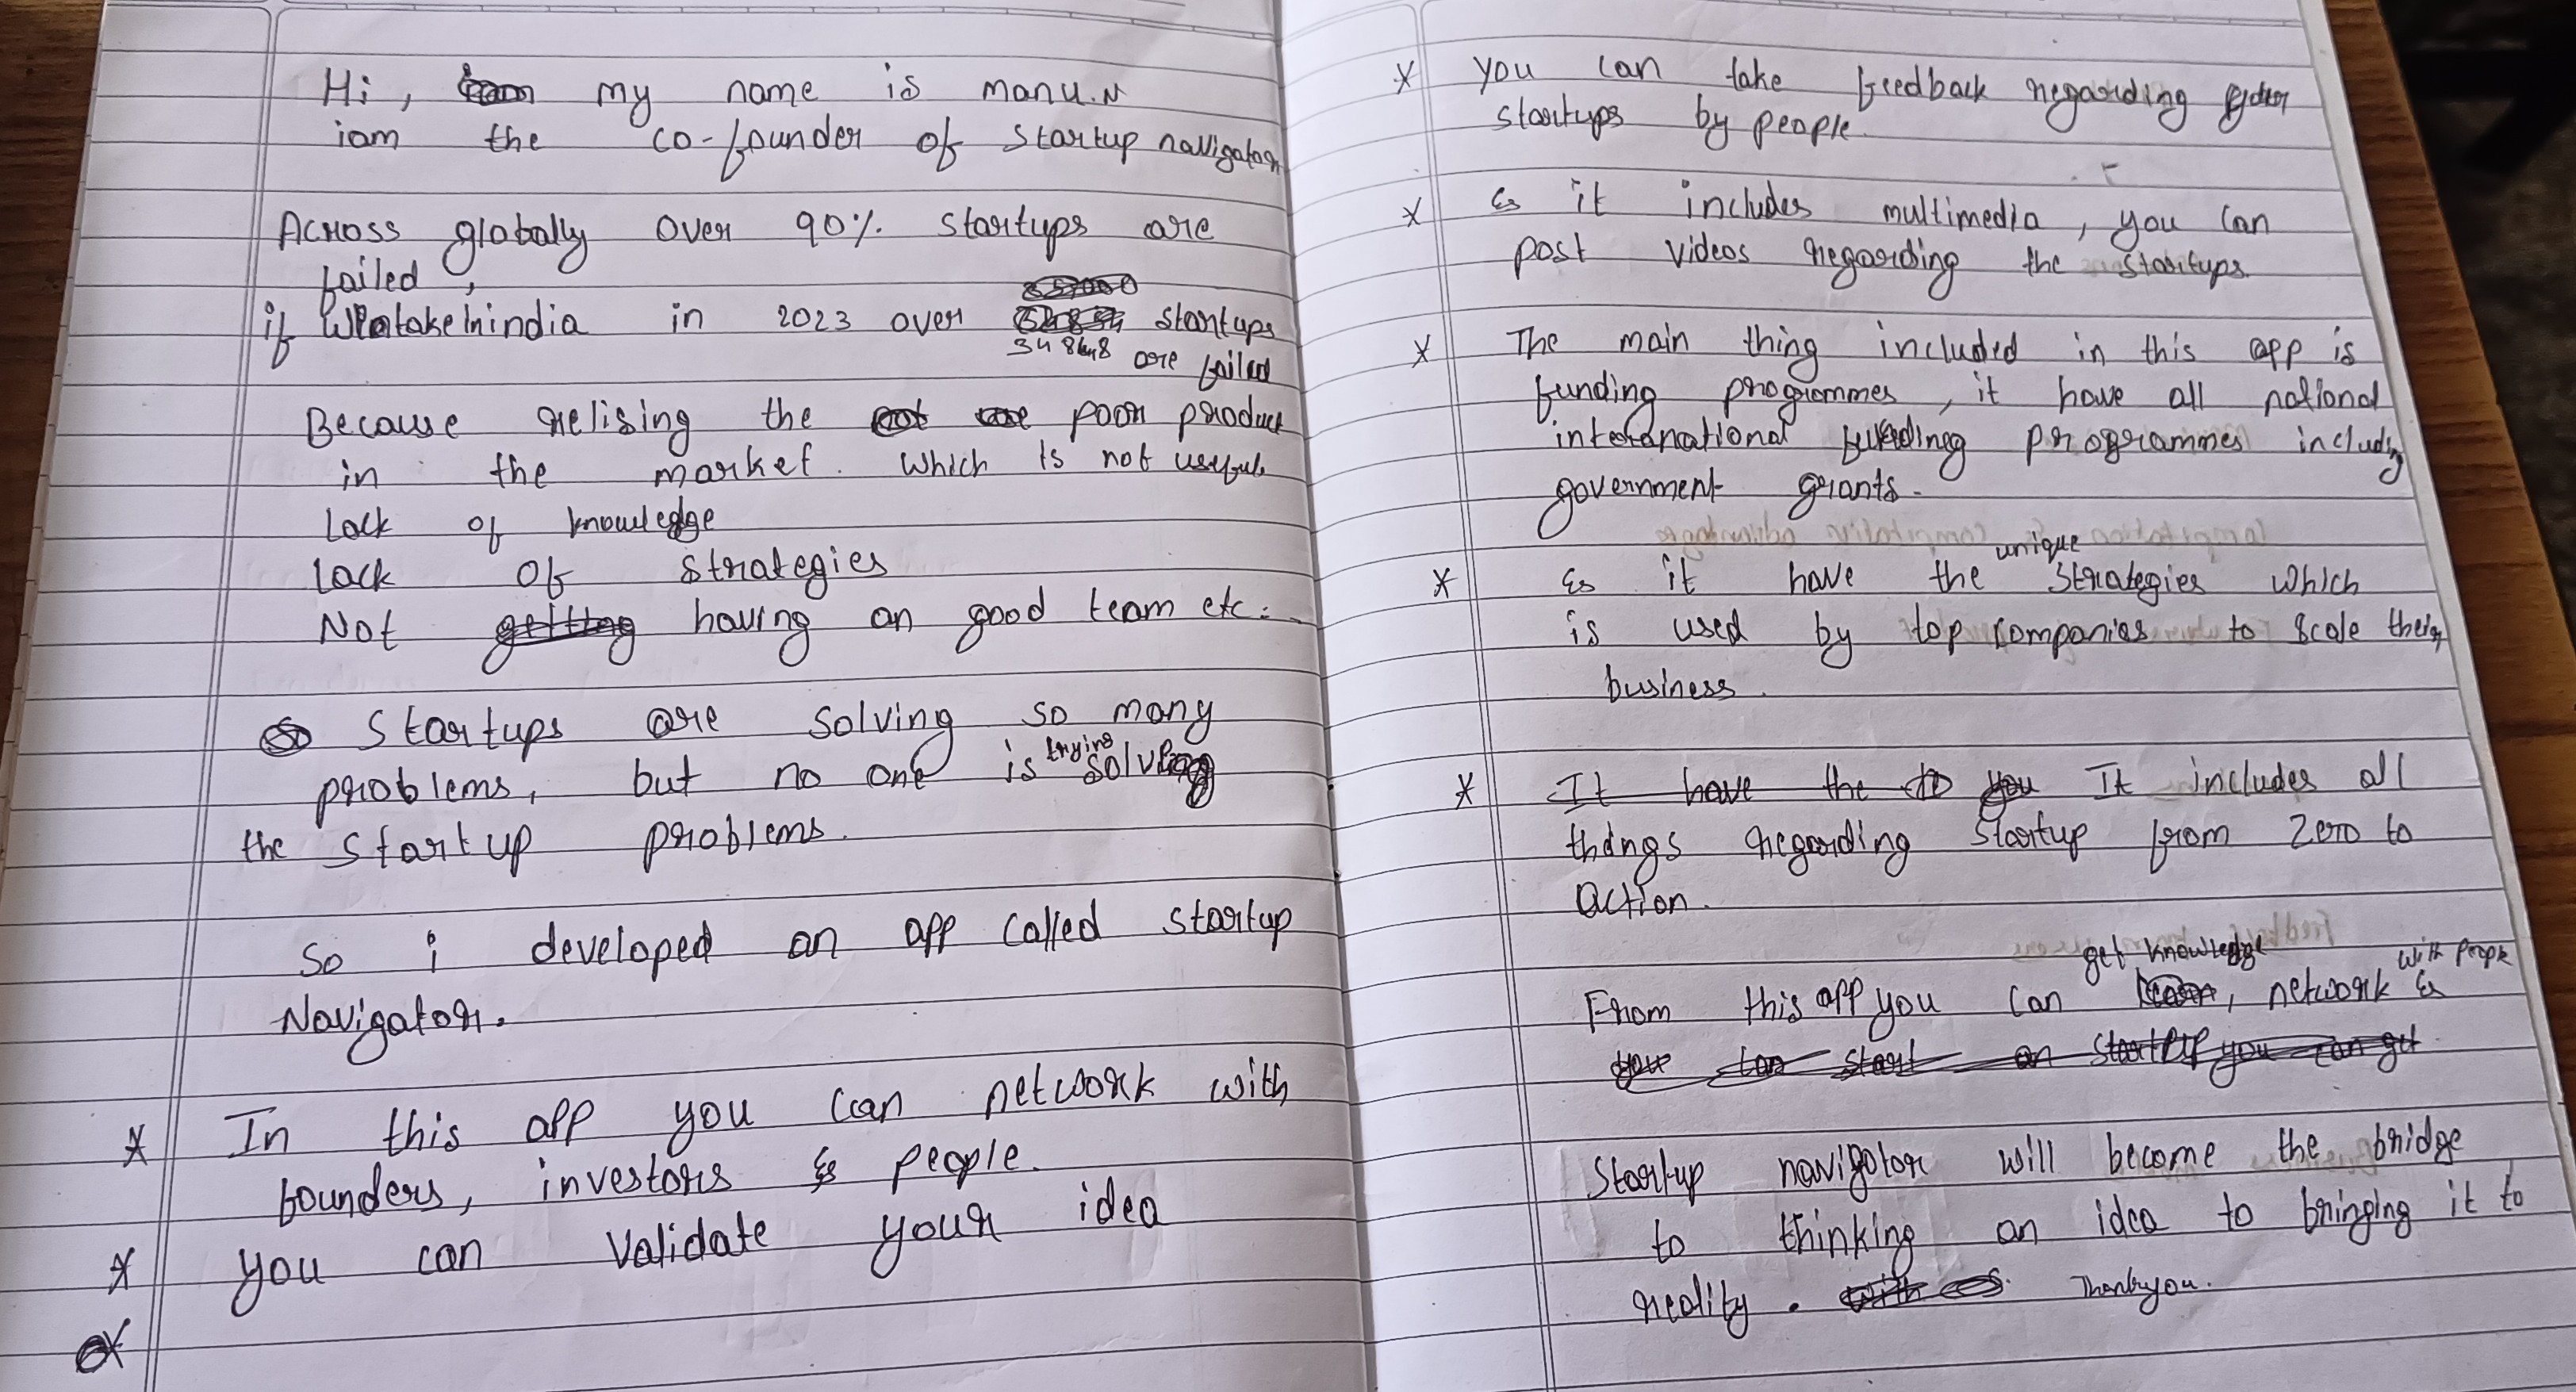 Hi, my name is manu.N
iam the co-founder of startup navigator
Across globally over 90% startups are
failed,
if We take in india in 2023 over startups
are failed
Because relising the poor product
in the market. which is not useful
Lack of knowledge
Lack of strategies
Not having an good team etc.
Startups are solving so many
problems, but no one is trying solving
the startup problems.
So i developed an app called startup
Navigator.
* In this app you can network with
founders, investors & people.
* you can validate your idea
* you can take feedback regarding
startups by people.
* & it includes multimedia, you can
post videos regarding the startups.
* The main thing included in this app is
funding programmes, it have all national
international funding programmes including
government grants.
* & it have the unique strategies which
is used by top companies to scale their
business.
* It includes all
things regarding startup from zero to
action.
From this app you can get knowledge, network with people &
Startup navigator will become the bridge
to thinking an idea to bringing it to
reality. Thankyou.